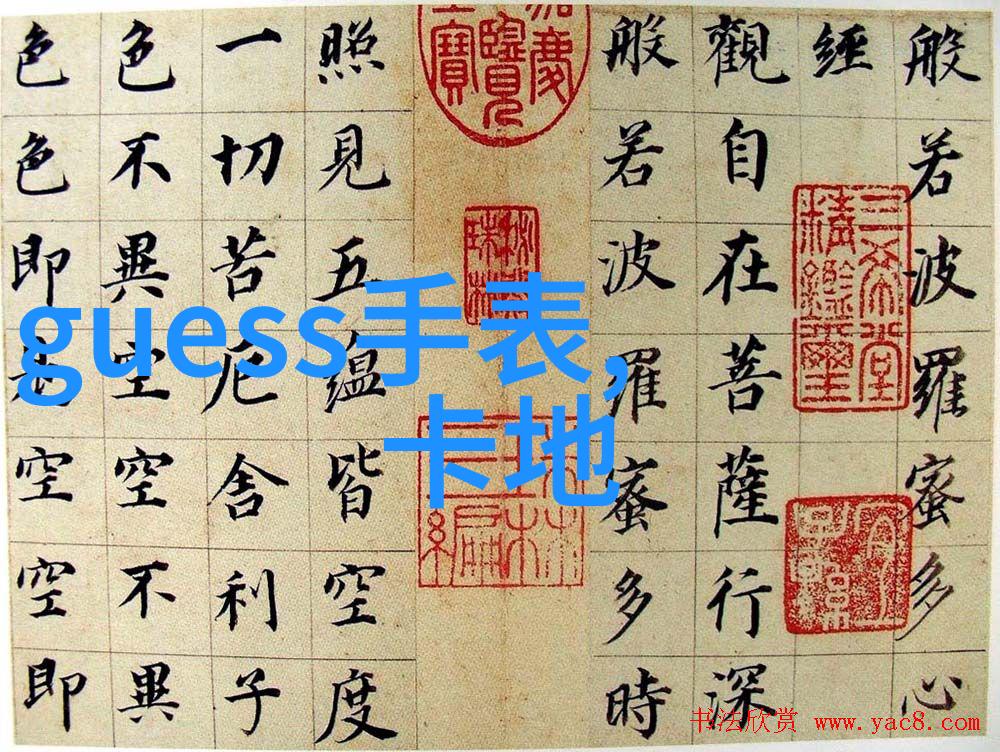 般若波羅蜜多心
經
觀自在菩薩行深
般若波羅蜜多時
照見五蘊皆空度
一切苦厄舍利子
色不異空空不異
色色即是空空即
三希堂
精鑑璽
guess手表,
卡地
书法欣赏 www.yac8.com